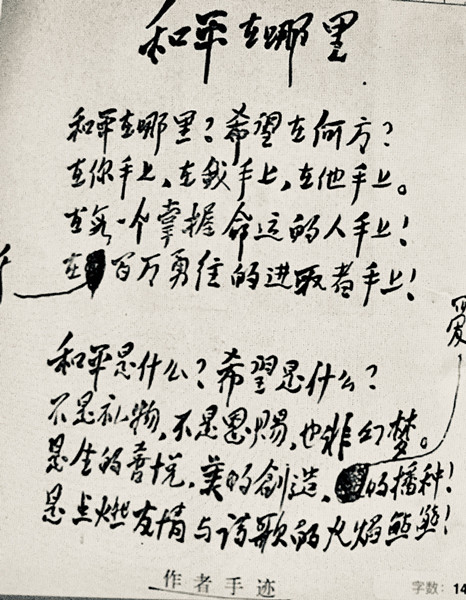 和平在哪里
和平在哪里？希望在何方？
在你手上，在我手上，在他手上。
在每一个掌握命运的人手上！
在千百万勇往的进取者手上！
和平是什么？希望是什么？
不是礼物，不是恩赐，也非幻梦。
是生的喜悦，美的創造，愛的播种！
是点燃友情与诗歌的火焰熊熊！
作者手迹
字数: 14